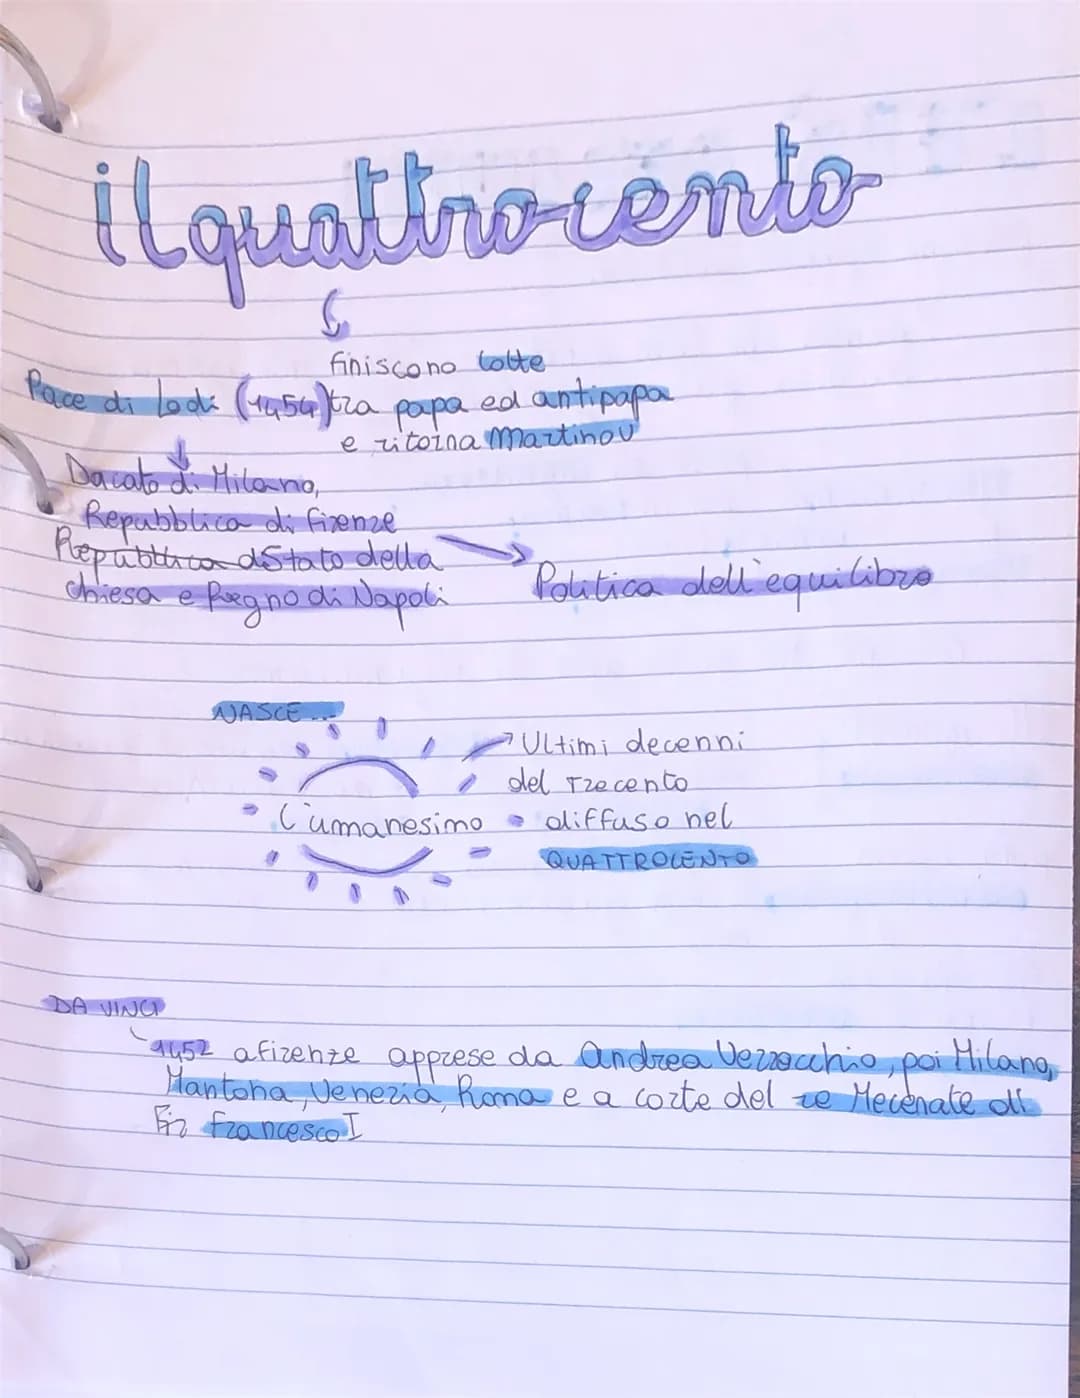 il quattrocento
finiscono lotte
Pace di Lodi (1454) tra papa ed antipapa
e ritorna Martino V
Ducato di Milano,
Repubblica di Firenze
Repubblica dStato della
chiesa e Regno di Napoli
Politica dell'equilibro
NASCE...
Ultimi decenni
del Trecento
l'umanesimo diffuso nel
QUATTROCENTO
DA VINCI
1452 a firenze apprese da Andrea Verrocchio, poi Milano,
Mantoha, Venezia, Roma e a corte del re Mecenate di
Francesco I